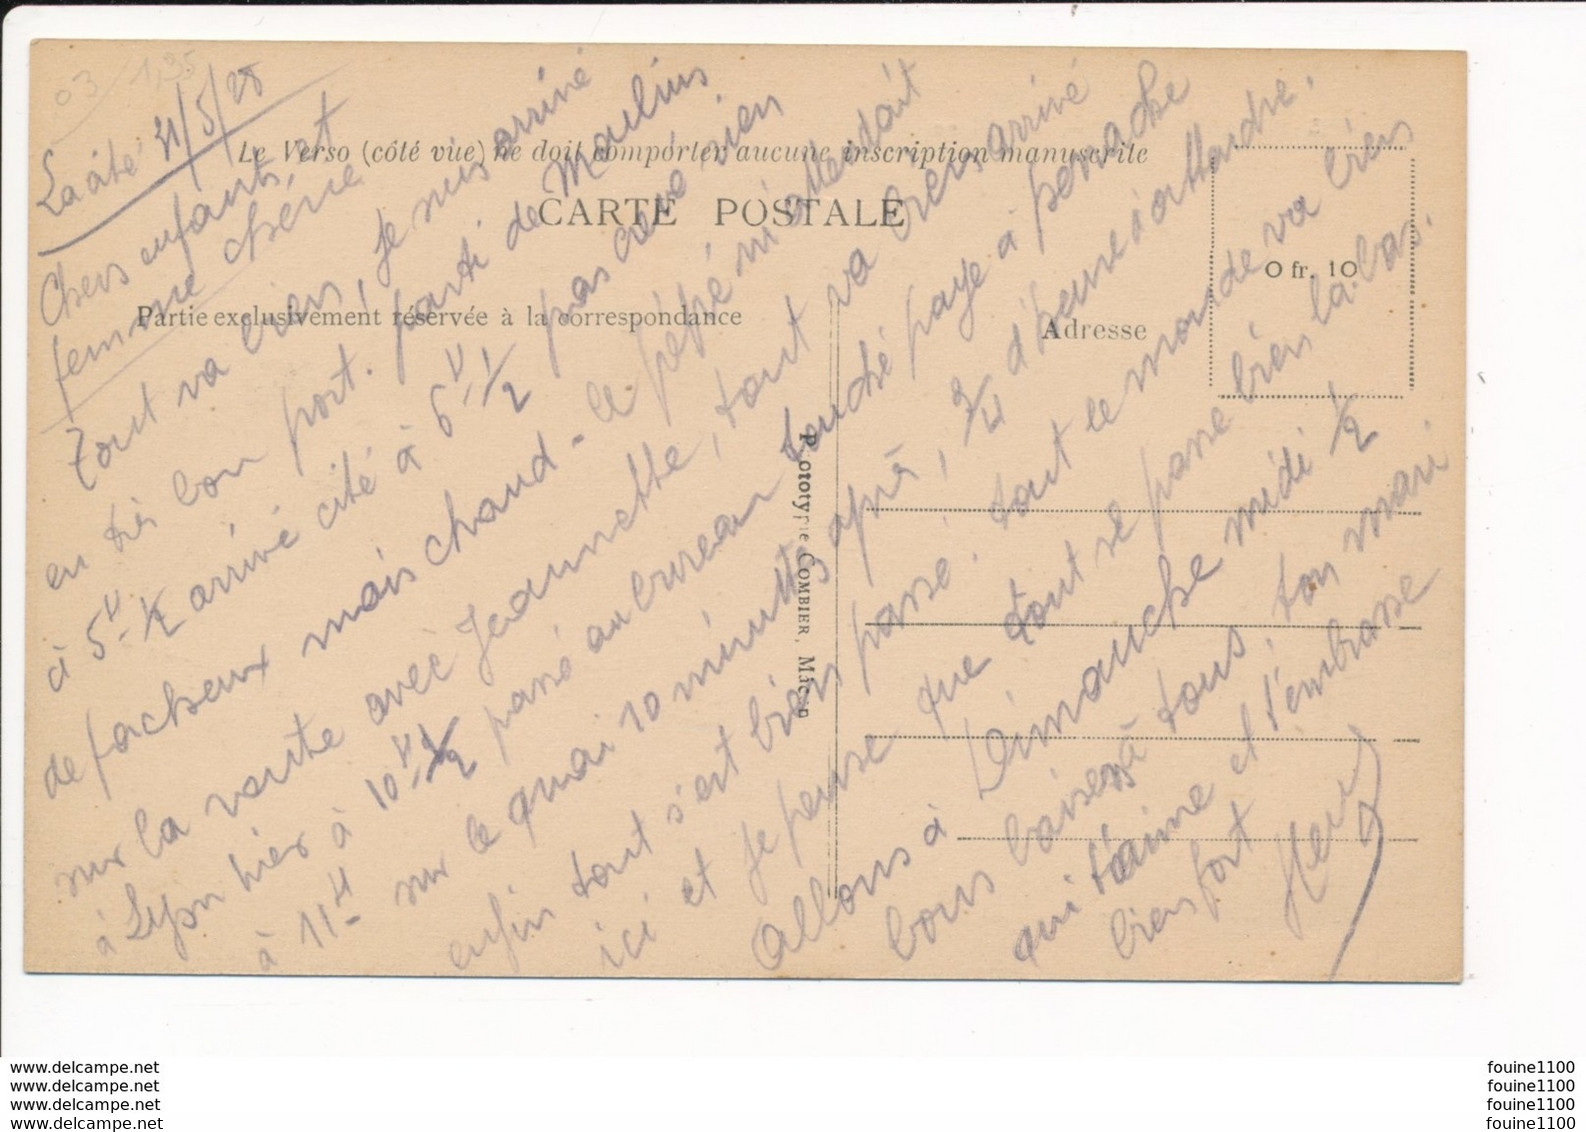 03 1,35
La cité 21/5/28
Le Verso (côté vue) ne doit comporter aucune inscription manuscrite
CARTE POSTALE
Partie exclusivement réservée à la correspondance
Adresse
0 fr. 10
Prototypie COMBIER, Mâcon
Chers enfants, et
femme chérie
Tout va bien, je suis arrivé
en très bon port. parti de Moulins
à 5h ½ arrivé cité à 6h ½ pas crevé rien
de facheux mais chaud - le pépé m'attendait
sur la route avec Jeannette, tout va bien arrivé
à Lyon hier à 10h ½ passé au bureau touché paye à perrache
à 11h sur le quai 10 minutes après, ¾ d'heure d'attendre.
enfin tout s'est bien passé. tout le monde va bien
ici et je pense que tout se passe bien la bas.
Allons à Dimanche midi ½
bons baisers à tous, ton mari
qui t'aime et t'embrasse
bien fort
www.delcampe.com
www.delcampe.net
www.delcampe.com
www.delcampe.net
fouine1100
fouine1100
fouine1100
fouine1100